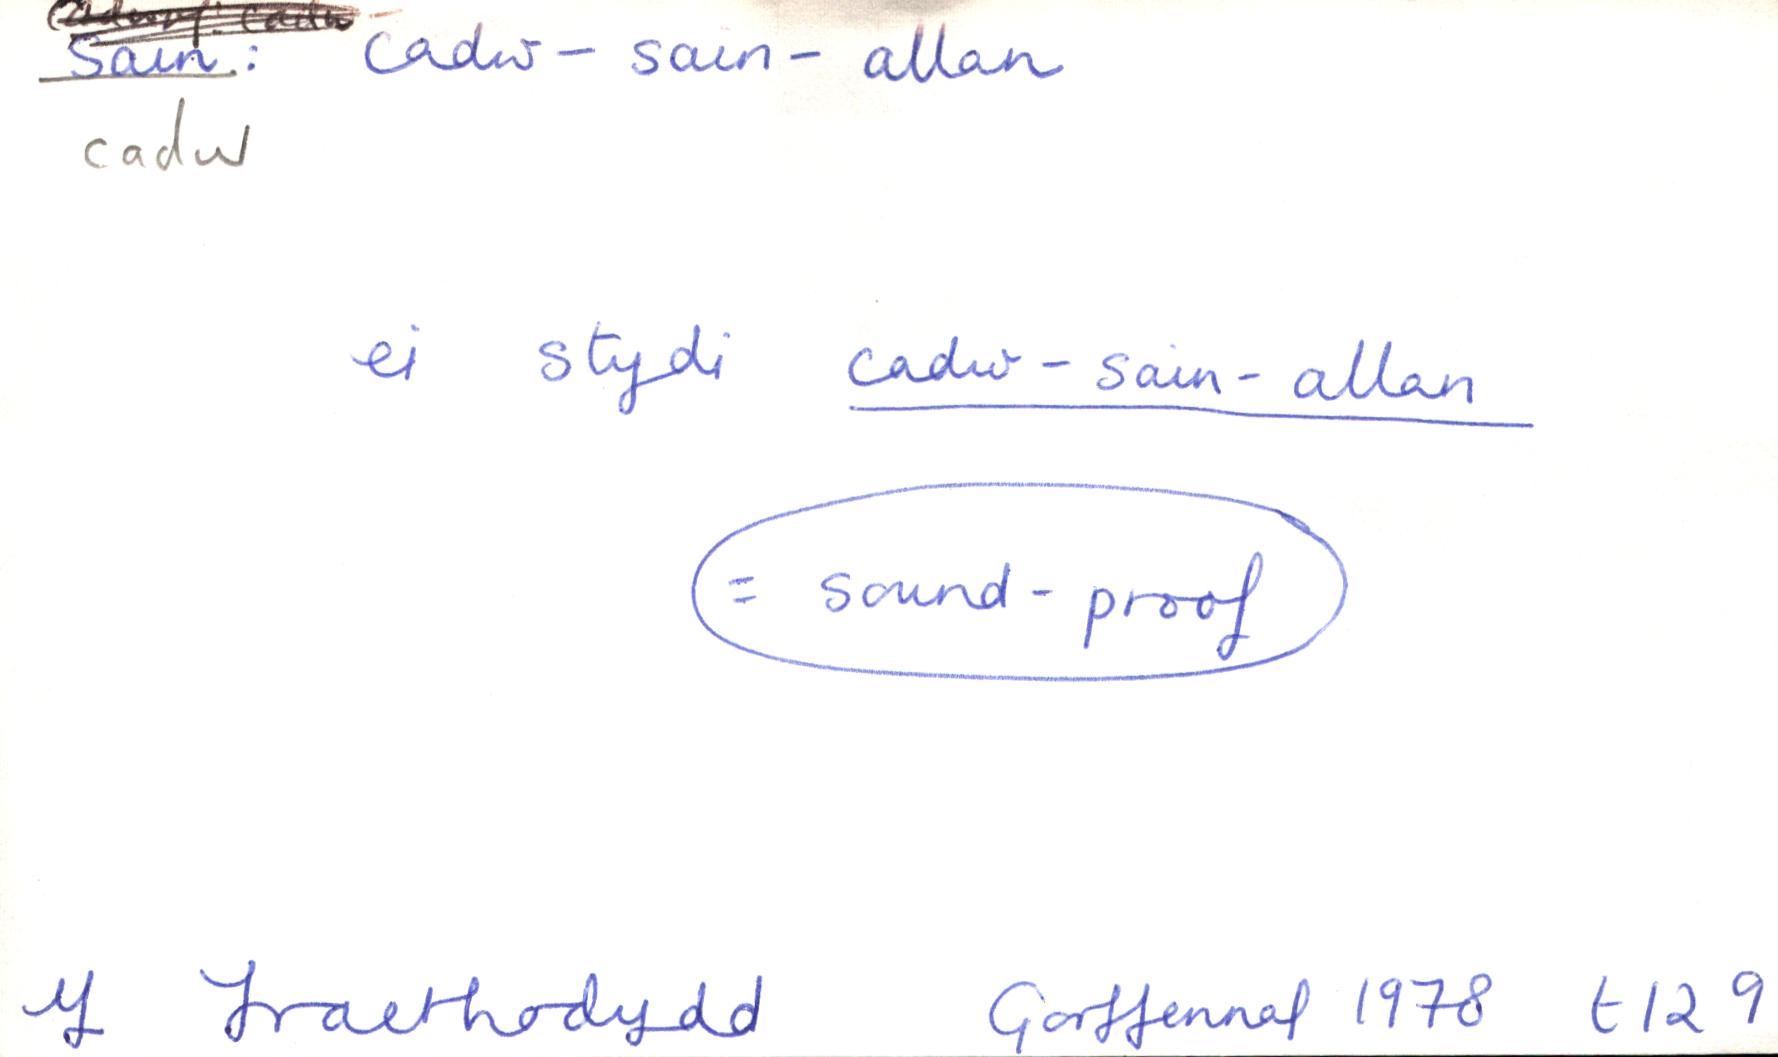 Sain: cadw-sain-allan
cadw
ei stydi cadw-sain-allan
= sound-proof
Y Traethodydd Gorffennaf 1978 t129